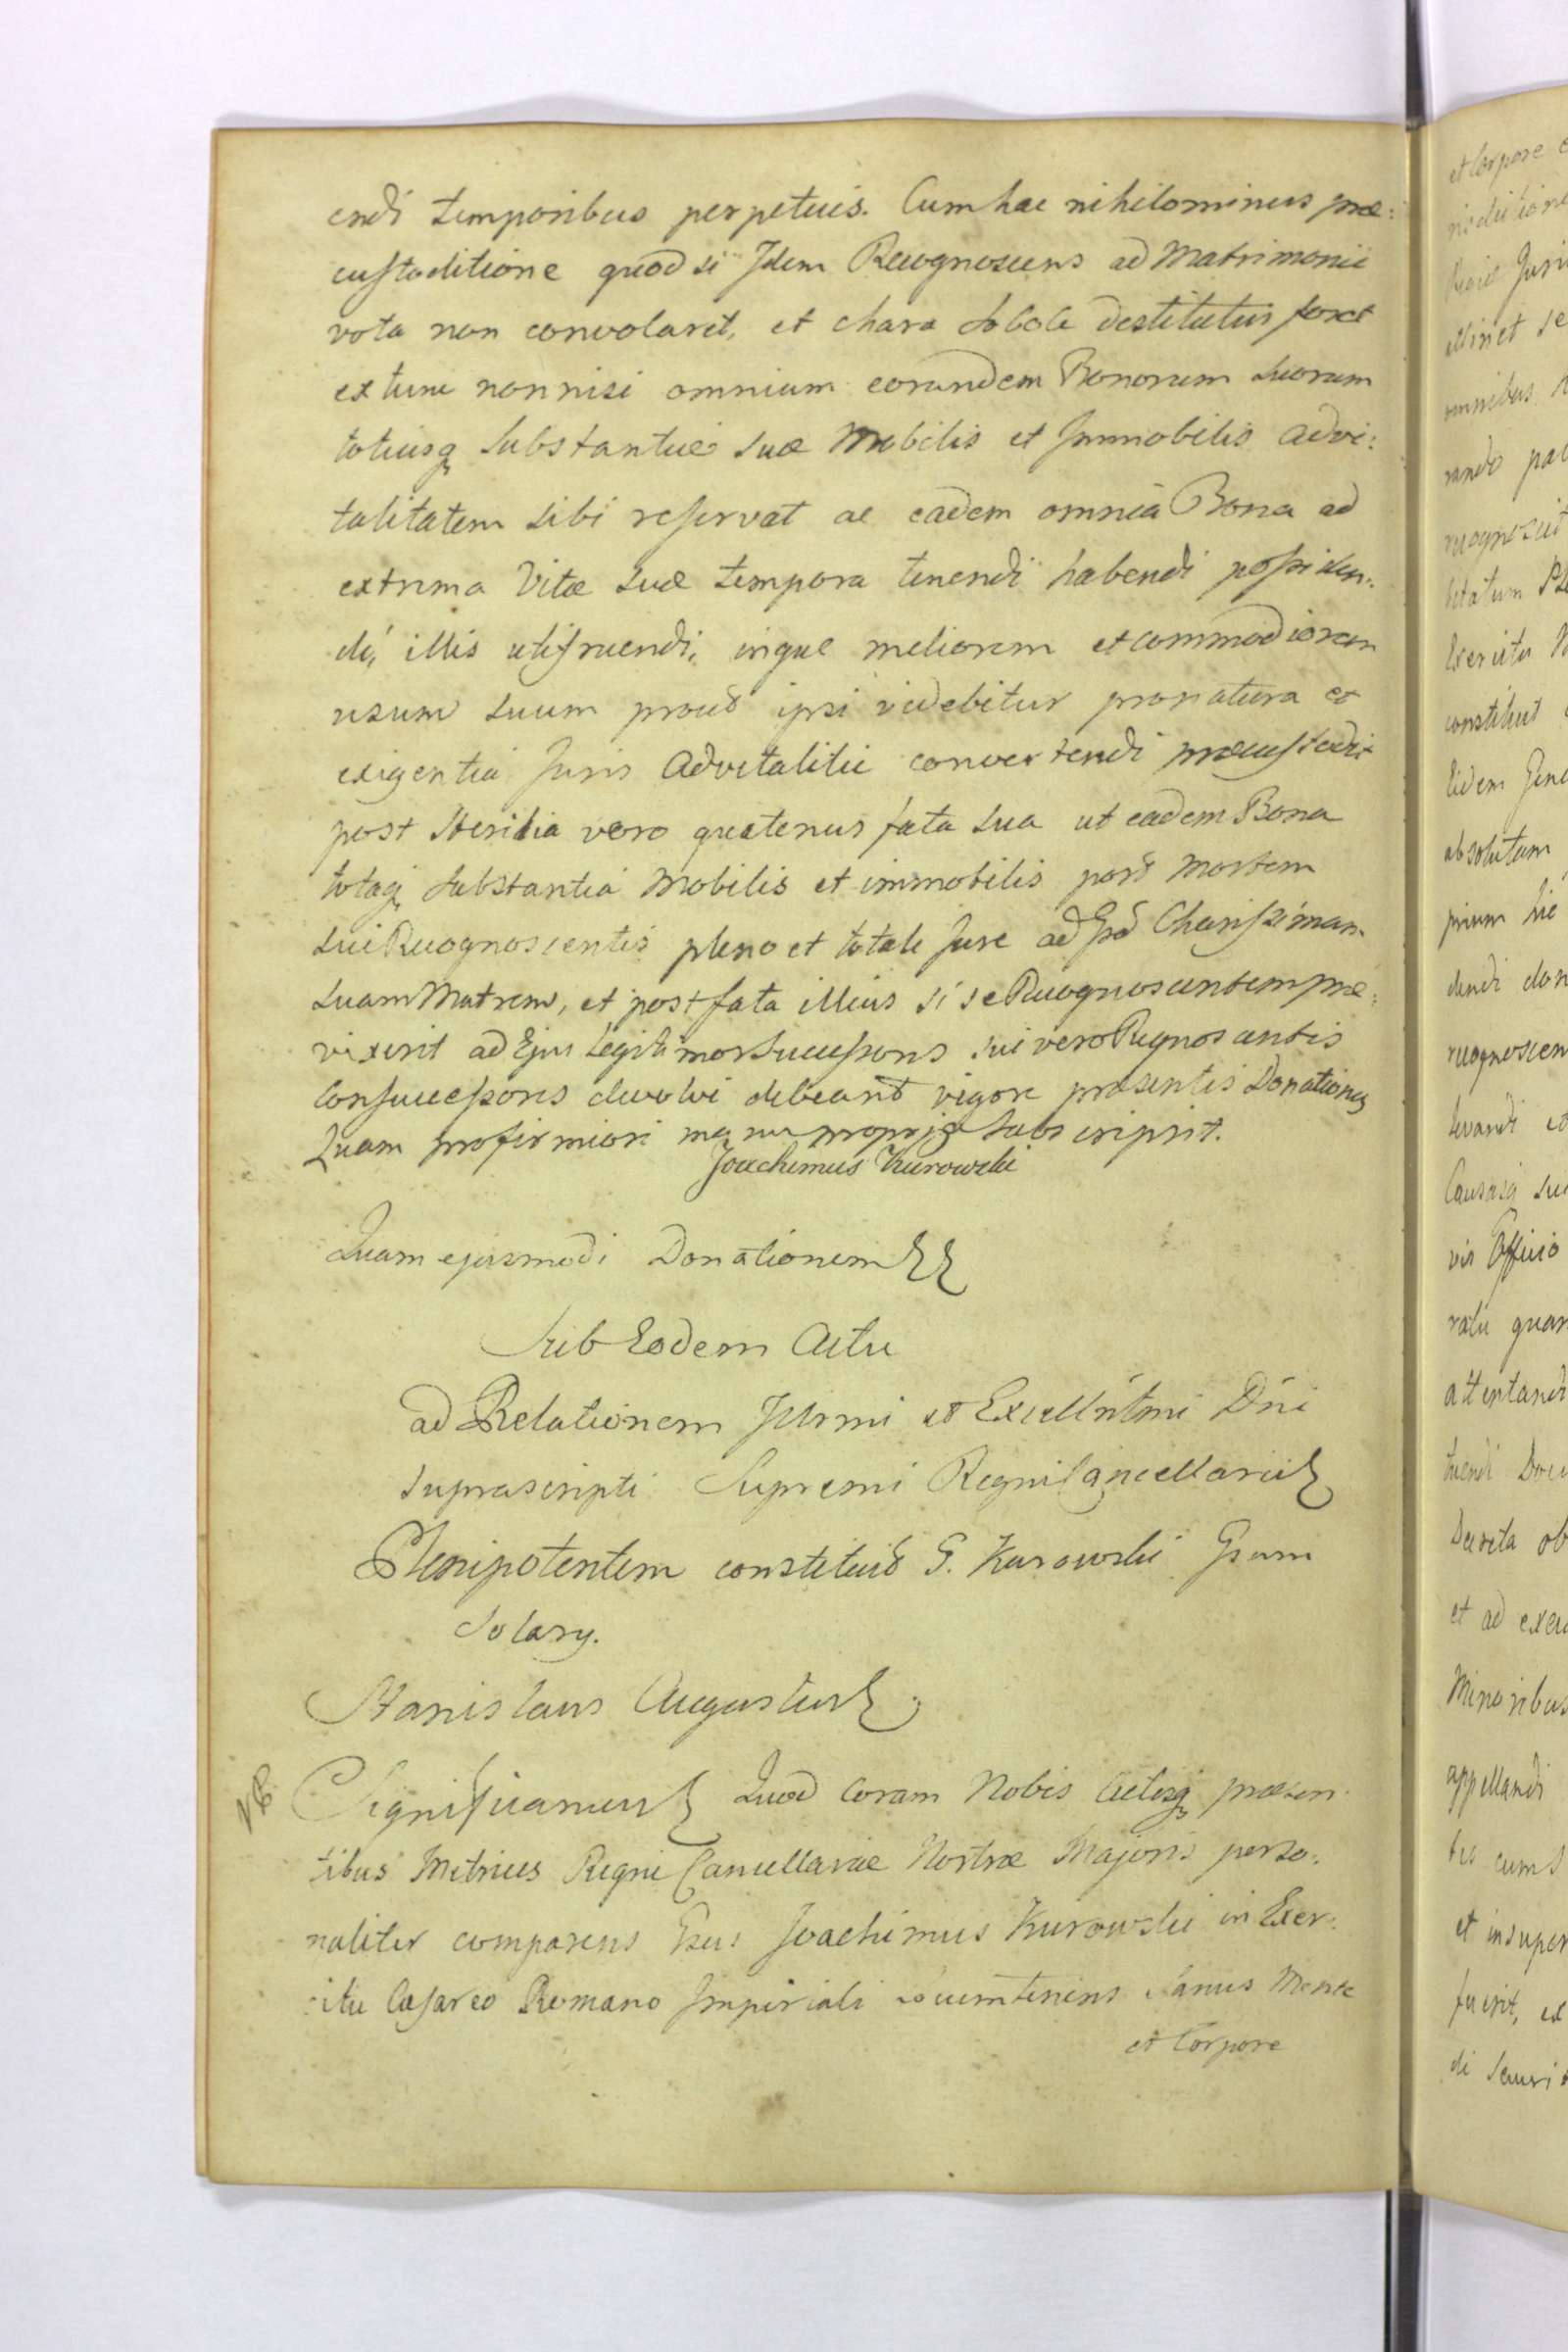 endi temporibus perpetuis. Cum hac nihilominus præ:
custoditione quod si Idem Recognoscens ad Matrimonii
vota non convolaret, et chara Sobole destitutus foret
extunc nonnisi omnium eorundem Bonorum suorum
totiusq Substantiæ suæ Mobilis et Immobilis advi:
talitatem sibi reservat ac eadem omnia Bona ad
extrema Vitæ suæ tempora tenendi habendi possiden:
di, illis utifruendi, inque meliorem et commodiorem
usum suum prout ipsi videbitur pro natura et
exigentia Juris Advitalitii convertendi præcustodit
post Sterilia vero quatenus fata sua ut eadem Bona
totaq substantia Mobilis et immobilis post Mortem
sui Recognoscentis pleno et totali Jure ad Charissimam
suam Matrem, et post fata illius si se Recognoscentem præ:
vixerit ad Ejus legitimos Successores sui vero Recognoscentis
Consuccessores devolvi debeant vigore præsentis Donationis
Quam pro firmiori manu propria subscripsit.
Joachimus Kurowski
Quam ejusmodi Donationem
Sub Eodem Actu
ad Relationem Illrmi et Excellntmi Dni
suprascripti Supremi Regni Cancellarii
Plenipotentem constituit G. Kurowski Gsum
Solary.
Stanislaus Augustus
NB
Significamus Quod Coram Nobis Actisq præsen:
tibus Metrices Regni Cancellariæ Nostræ Majoris perso:
naliter comparens Gsus Joachimus Kurowski in Exer:
citu Cæsareo Romano Imperiali Locumtenens Sanus Mente
et Corpore
et Corpore
Juri
omnibus
rando
recognoscit
constituit
absolutam
dendi
recognoscen
levandi
Causasq
vis Officio
ratu quam
attentandi
Decreta ob
et ad
Minoribus
appellandi
et insuper